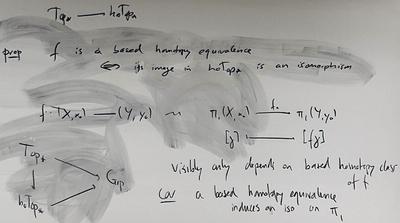 Top* → hoTop*
prop f is a based homotopy equivalence
⟺ its image in hoTop* is an isomorphism
f : (X, x₀) → (Y, y₀) ⇝ π₁(X, x₀) →f* π₁(Y, y₀)
[γ] ↦ [fγ]
Top* → Grp
↓
hoTop* → Grp
visibly only depends on based homotopy class
of f
Cor a based homotopy equivalence
induces an iso on π₁